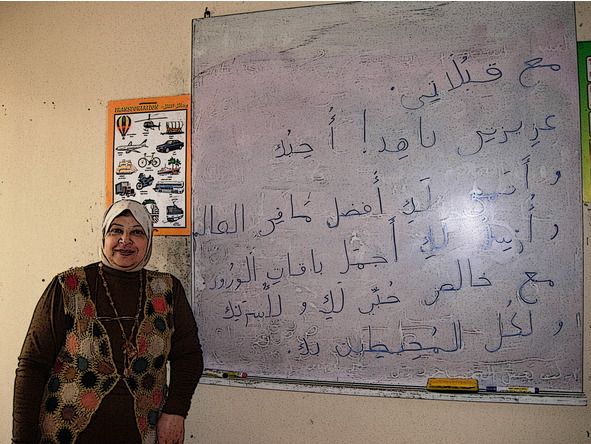 TRANSPORTATION
مع قُبُلاتي.
عزيزتي ناهِد! أُحِبُّك
و أَتمنى لَكِ أَفضل مَا في العالم
و أُرسِلُ لَكِ أَجمَل باقاتِ الورود
مع خالص حُبّي لَكِ و لأُسرَتك
و لكُل المُحِيطين بك.